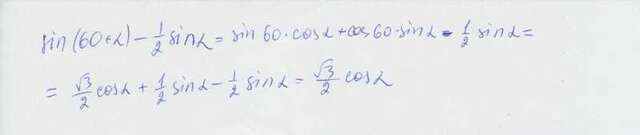 sin(60+α) - 1/2 sinα = sin60·cosα + cos60·sinα - 1/2 sinα =
= √3/2 cosα + 1/2 sinα - 1/2 sinα = √3/2 cosα